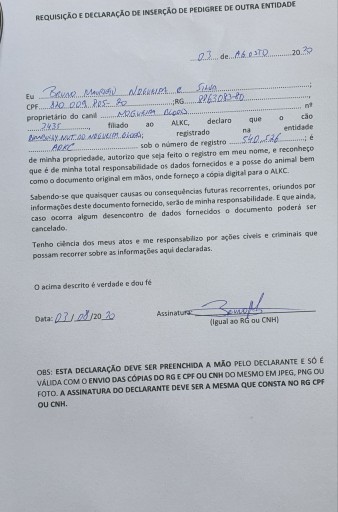 REQUISIÇÃO E DECLARAÇÃO DE INSERÇÃO DE PEDIGREE DE OUTRA ENTIDADE
03 de AGOSTO 2020
Eu BRUNO NOGUEIRA E SILVA;
CPF ;RG
proprietário do canil NOGUEIRA BLOODS nº
2435, filiado ao ALKC, declaro que o cão
NOGUEIRA BLOODS; é
registrado na entidade
ARKC sob o número de registro
de minha propriedade, autorizo que seja feito o registro em meu nome, e reconheço
que é de minha total responsabilidade os dados fornecidos e a posse do animal bem
como o documento original em mãos, onde forneço a cópia digital para o ALKC.
Sabendo-se que quaisquer causas ou consequências futuras recorrentes, oriundos por
informações deste documento fornecido, serão de minha responsabilidade. E que ainda,
caso ocorra algum desencontro de dados fornecidos o documento poderá ser
cancelado.
Tenho ciência dos meus atos e me responsabilizo por ações cíveis e criminais que
possam recorrer sobre as informações aqui declaradas.
O acima descrito é verdade e dou fé
Data: 03/08/2020 Assinatura:
(Igual ao RG ou CNH)
OBS: ESTA DECLARAÇÃO DEVE SER PREENCHIDA A MÃO PELO DECLARANTE E SÓ É
VÁLIDA COM O ENVIO DAS CÓPIAS DO RG E CPF OU CNH DO MESMO EM JPEG, PNG OU
FOTO. A ASSINATURA DO DECLARANTE DEVE SER A MESMA QUE CONSTA NO RG CPF
OU CNH.